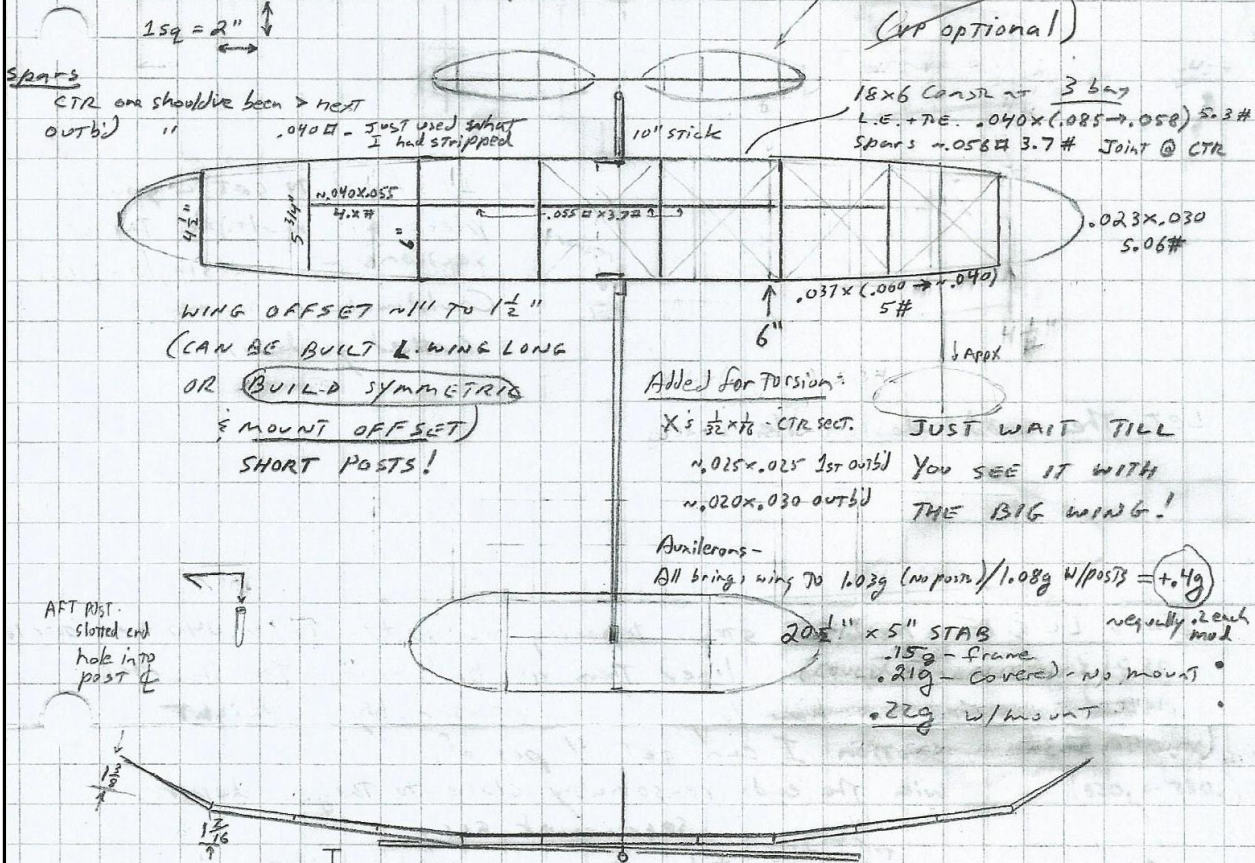 1 sq = 2"
(VP optional)
Spars
CTR one should've been > next
OUTB'd " .040 □ - Just used what
I had stripped
10" stick
18x6 Const. at 3 bay
L.E. + T.E. .040 x (.085 → .058) 5.3#
Spars ~.056 □ 3.7# Joint @ CTR
~.040X.055
4.X#
.055 □ x 3.7#
4 1/2"
5 3/4"
6"
.023x.030
5.06#
.037x(.060 → ~.040)
5#
6"
↓ Appx
WING OFFSET ~1" TO 1 1/2"
(CAN BE BUILT L. WING LONG
OR BUILD SYMMETRIC
& MOUNT OFFSET)
SHORT POSTS!
Added for Torsion:
X's 1/32 x 1/16 - CTR SECT.
~.025x.025 1st outb'd
~.020x.030 outb'd
JUST WAIT TILL
YOU SEE IT WITH
THE BIG WING!
Auxilerons -
All brings wing To 1.03g (no posts)/1.08g W/posts = +.4g
~equally .2 each
mod
AFT POST.
slotted end
hole into
post ℄
20 1/2" x 5" STAB
.15g - frame
.21g - covered - no mount
.22g w/mount
1 3/8
1 7/16